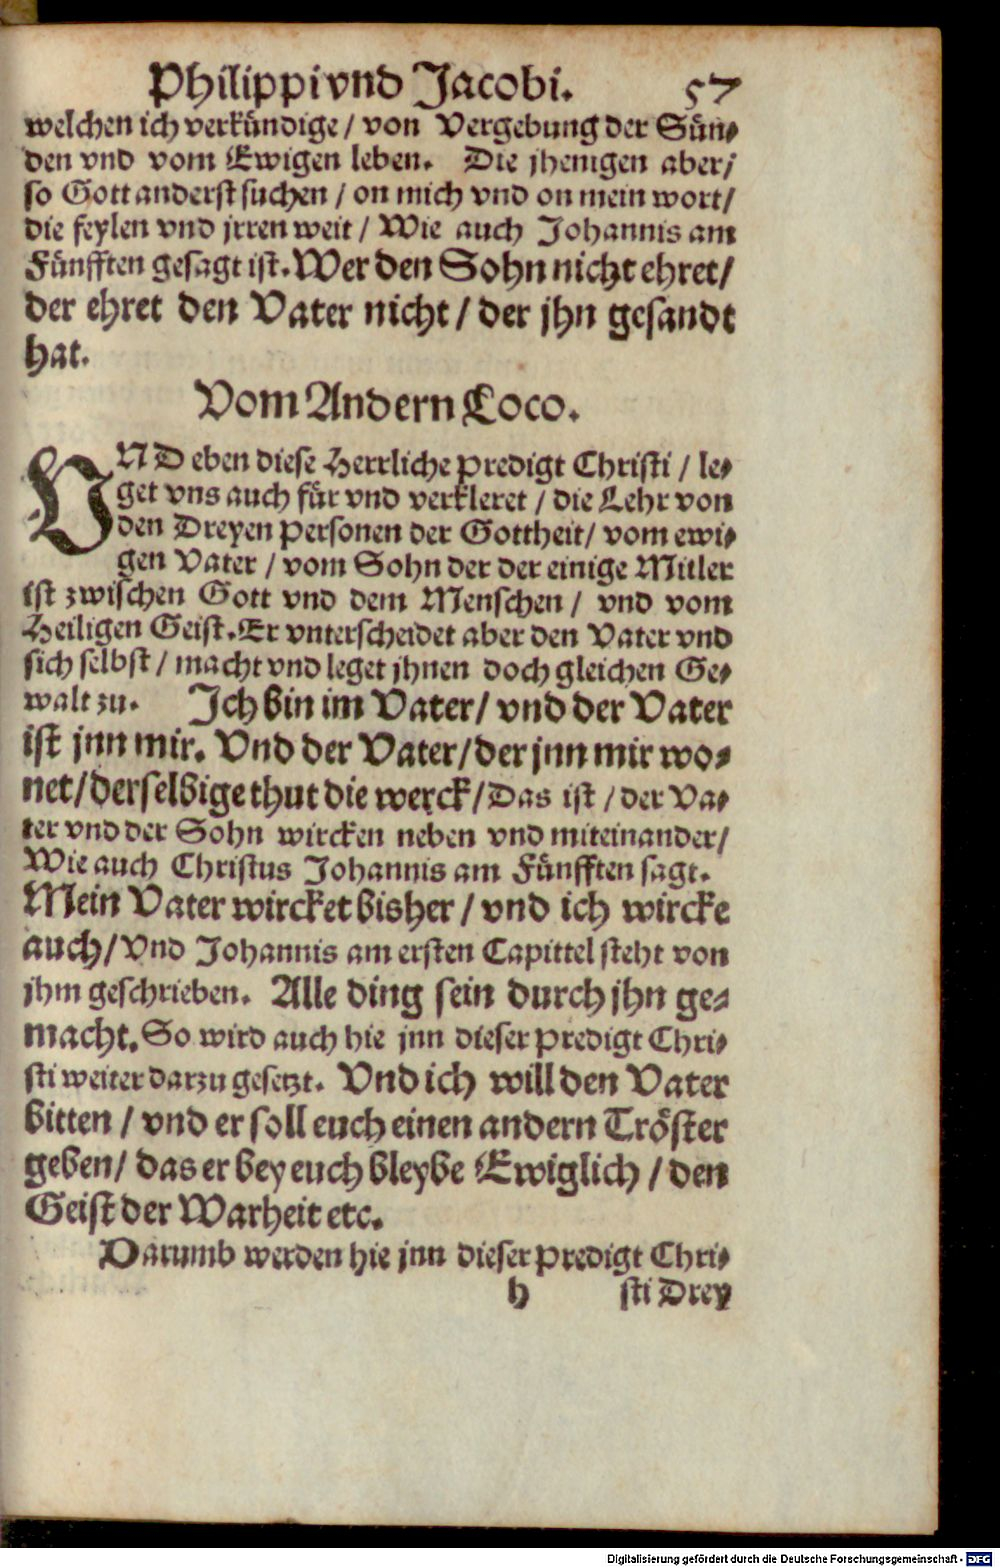 Philippi vnd Jacobi. 57
welchen ich verkündige / von Vergebung der Sün⸗
den vnd vom Ewigen leben. Die jhenigen aber /
so Gott anderst suchen / on mich vnd on mein wort /
die feylen vnd jrren weit / Wie auch Johannis am
Fünfften gesagt ist. Wer den Sohn nicht ehret /
der ehret den Vater nicht / der jhn gesandt
hat.
Vom Andern Loco.
VND eben diese Herrliche predigt Christi / le⸗
get vns auch für vnd verkleret / die Lehr von
den Dreyen personen der Gottheit / vom ewi⸗
gen Vater / vom Sohn der der einige Mitler
ist zwischen Gott vnd dem Menschen / vnd vom
Heiligen Geist. Er vnterscheidet aber den Vater vnd
sich selbst / macht vnd leget jhnen doch gleichen Ge⸗
walt zu. Ich bin im Vater / vnd der Vater
ist jnn mir. Vnd der Vater / der jnn mir wo⸗
net / derselbige thut die werck / Das ist / der Va⸗
ter vnd der Sohn wircken neben vnd miteinander /
Wie auch Christus Johannis am Fünfften sagt.
Mein Vater wircket bisher / vnd ich wircke
auch / Vnd Johannis am ersten Capittel steht von
jhm geschrieben. Alle ding sein durch jhn ge⸗
macht. So wird auch hie jnn dieser predigt Chri⸗
sti weiter darzu gesetzt. Vnd ich will den Vater
bitten / vnd er soll euch einen andern Tröster
geben / das er bey euch bleybe Ewiglich / den
Geist der Warheit etc.
Darumb werden hie jnn dieser predigt Chri⸗
h sti Drey
Digitalisierung gefördert durch die Deutsche Forschungsgemeinschaft - DFG